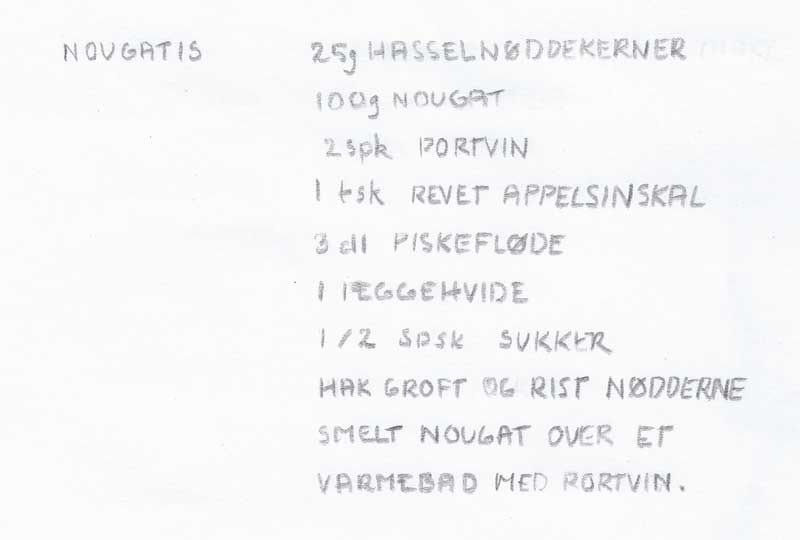 NOUGATIS 25g HASSELNØDDEKERNER
100g NOUGAT
2 spk PORTVIN
1 tsk REVET APPELSINSKAL
3 dl PISKEFLØDE
1 ÆGGEHVIDE
1/2 spsk SUKKER
HAK GROFT OG RIST NØDDERNE
SMELT NOUGAT OVER ET
VARMEBAD MED PORTVIN.